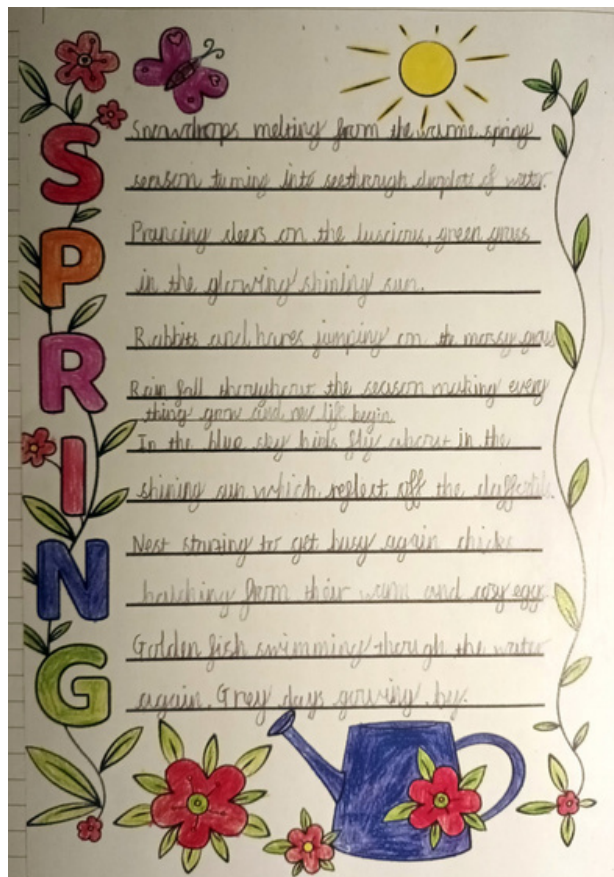 SPRING
Snowdrops melting from the warme spring
season turning into seethrough droplets of water.
Prancing deers on the luscious, green grass
in the glowing shining sun.
Rabbits and hares jumping on the mossy grass
Rain fall throughout the season making every
thing grow and new life begin.
In the blue sky birds fly about in the
shining sun which reflect off the daffodils.
Nest starting to get busy again chicks
hatching from their warm and cosy eggs.
Golden fish swimming through the water
again. Grey days going by.